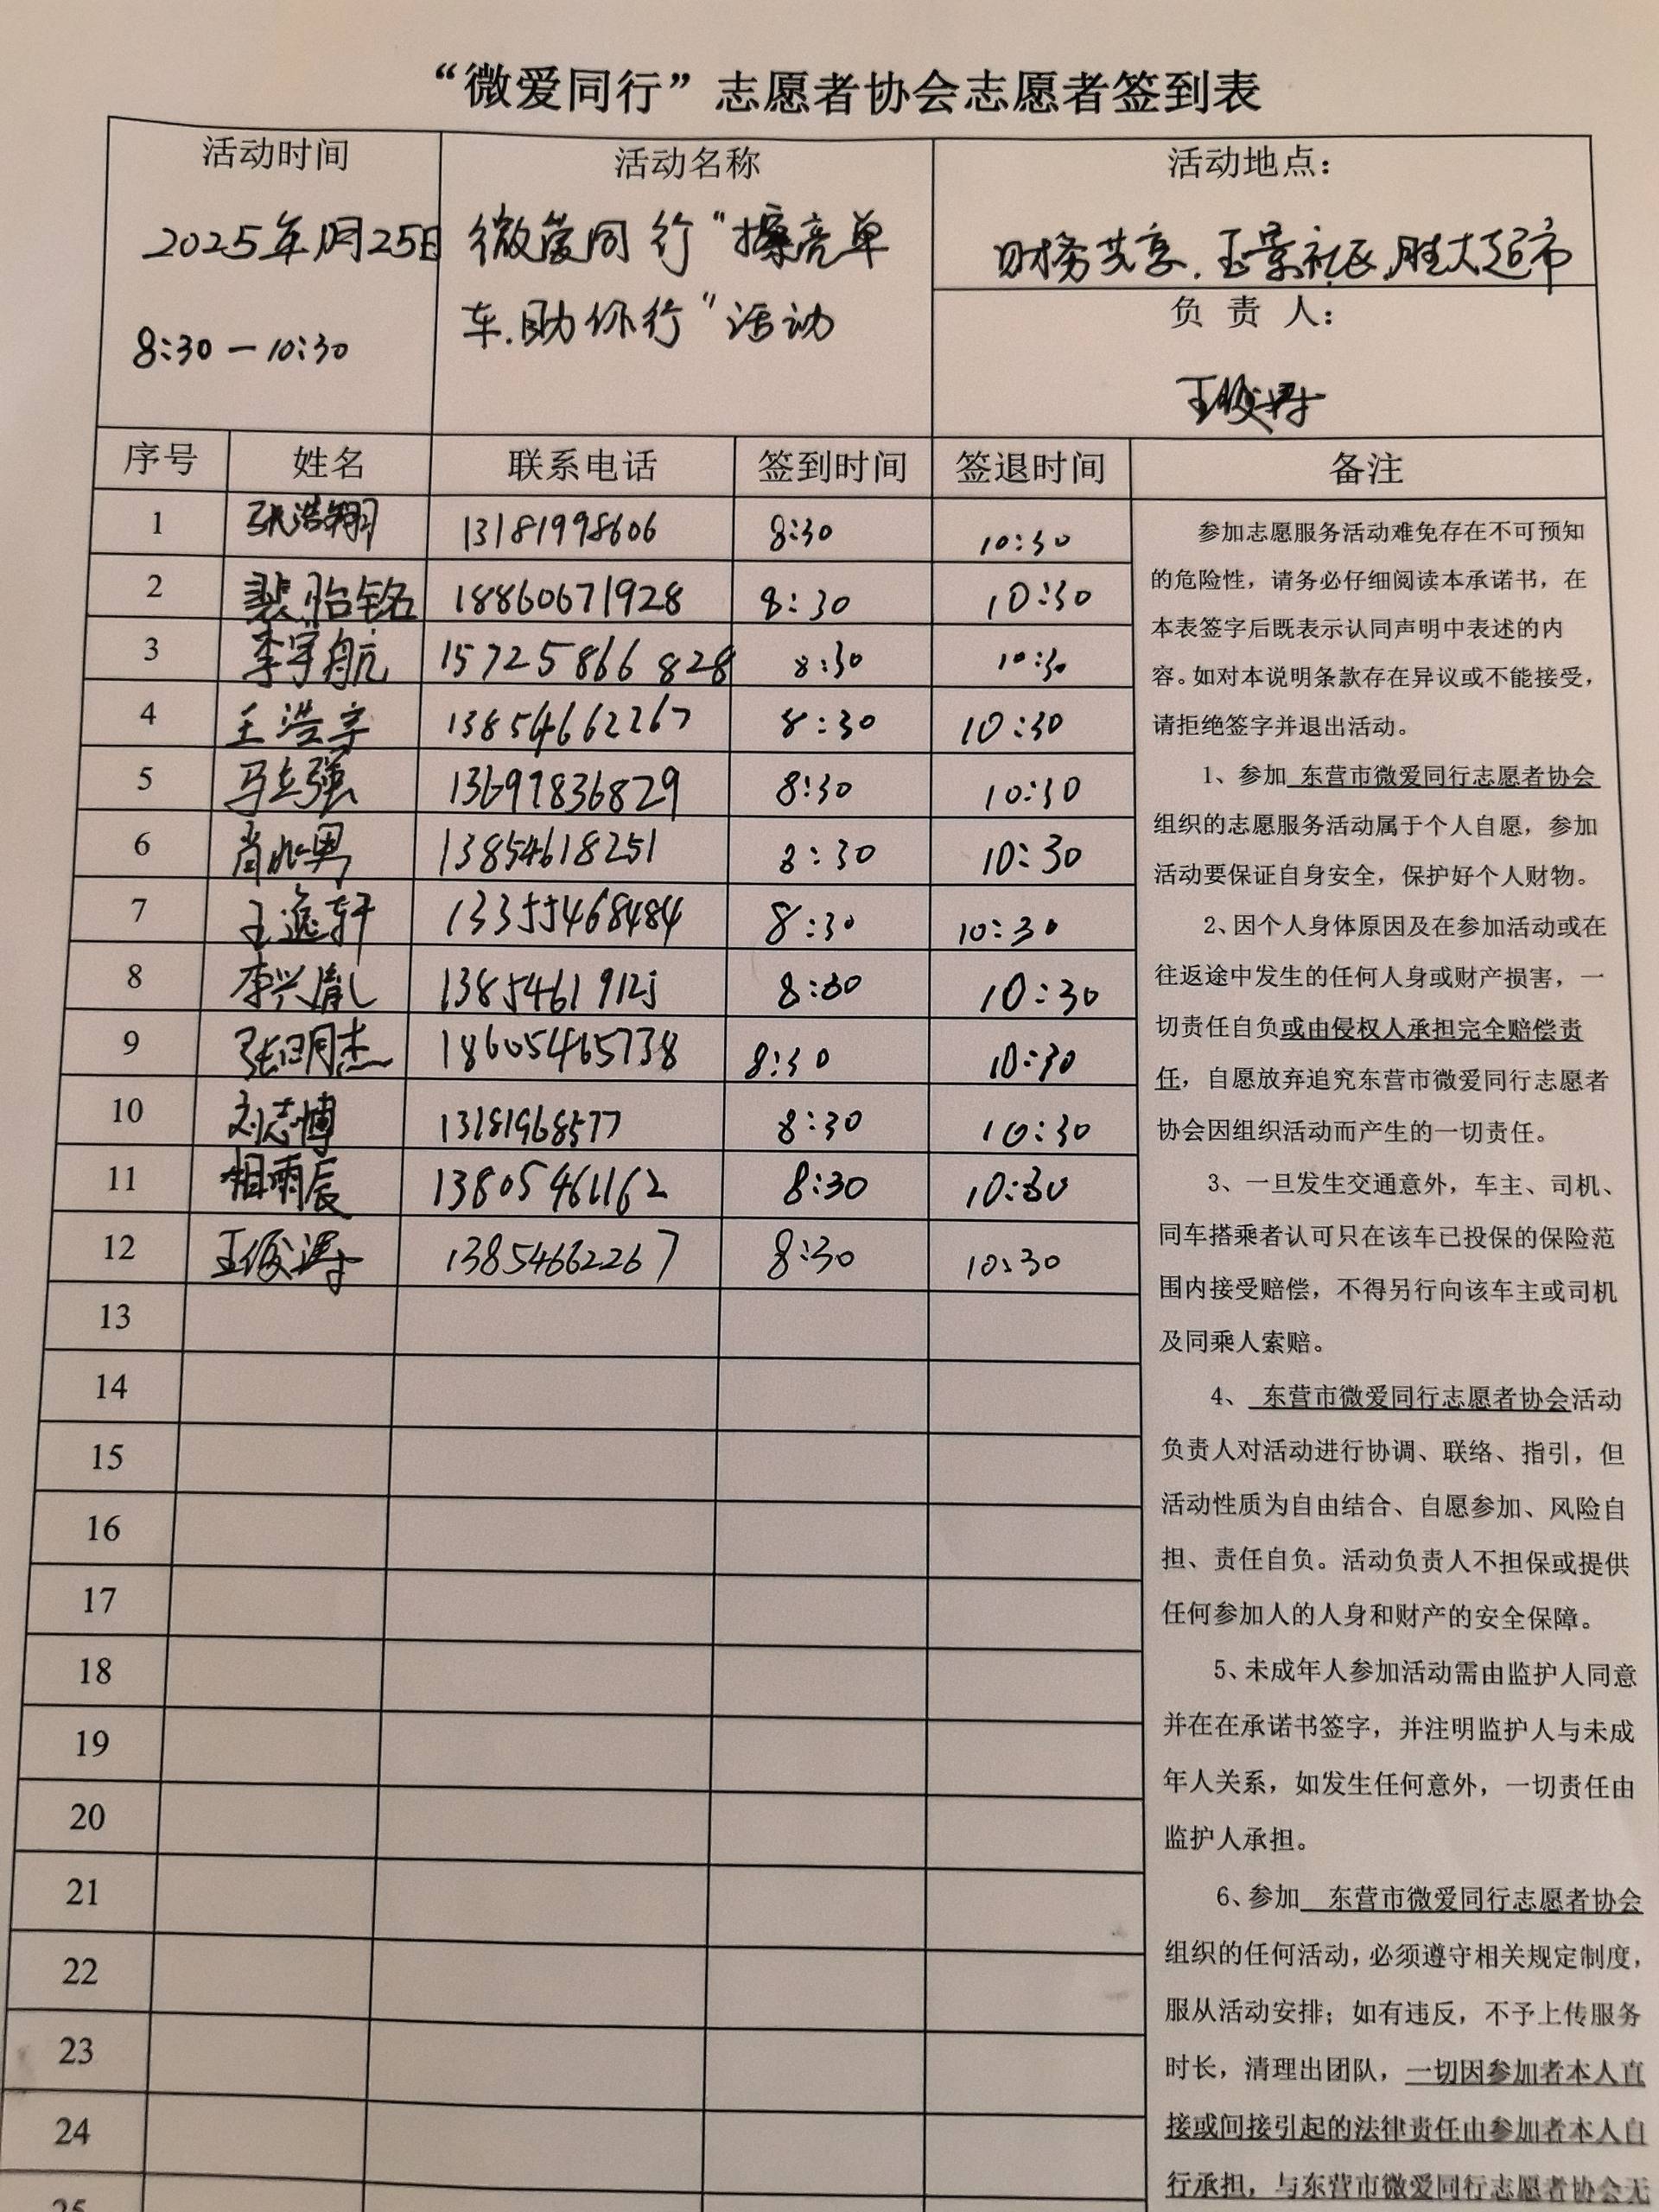 “微爱同行”志愿者协会志愿者签到表
活动时间
2025年1月25日
8:30—10:30
活动名称
微爱同行“擦亮单
车.助你行”活动
活动地点：
财务共享.玉景社区.胜大超市
负 责 人：
王俊
序号 姓名 联系电话 签到时间 签退时间 备注
1 张浩翔 13181998606 8:30 10:30
2 裴怡铭 18860671928 8:30 10:30
3 李宇航 15725866828 8:30 10:30
4 王浩宇 13854662267 8:30 10:30
5 马立强 13697836829 8:30 10:30
6 肖 男 13854618251 8:30 10:30
7 王逸轩 13355468484 8:30 10:30
8 李兴胤 13854619125 8:30 10:30
9 张明杰 18605465738 8:30 10:30
10 刘志博 13181968577 8:30 10:30
11 相雨辰 13805461162 8:30 10:30
12 王俊 13854662267 8:30 10:30
13
14
15
16
17
18
19
20
21
22
23
24
25
参加志愿服务活动难免存在不可预知
的危险性，请务必仔细阅读本承诺书，在
本表签字后既表示认同声明中表述的内
容。如对本说明条款存在异议或不能接受，
请拒绝签字并退出活动。
1、参加 东营市微爱同行志愿者协会
组织的志愿服务活动属于个人自愿，参加
活动要保证自身安全，保护好个人财物。
2、因个人身体原因及在参加活动或在
往返途中发生的任何人身或财产损害，一
切责任自负或由侵权人承担完全赔偿责
任，自愿放弃追究东营市微爱同行志愿者
协会因组织活动而产生的一切责任。
3、一旦发生交通意外，车主、司机、
同车搭乘者认可只在该车已投保的保险范
围内接受赔偿，不得另行向该车主或司机
及同乘人索赔。
4、 东营市微爱同行志愿者协会活动
负责人对活动进行协调、联络、指引，但
活动性质为自由结合、自愿参加、风险自
担、责任自负。活动负责人不担保或提供
任何参加人的人身和财产的安全保障。
5、未成年人参加活动需由监护人同意
并在在承诺书签字，并注明监护人与未成
年人关系，如发生任何意外，一切责任由
监护人承担。
6、参加 东营市微爱同行志愿者协会
组织的任何活动，必须遵守相关规定制度，
服从活动安排；如有违反，不予上传服务
时长，清理出团队，一切因参加者本人直
接或间接引起的法律责任由参加者本人自
行承担，与东营市微爱同行志愿者协会无